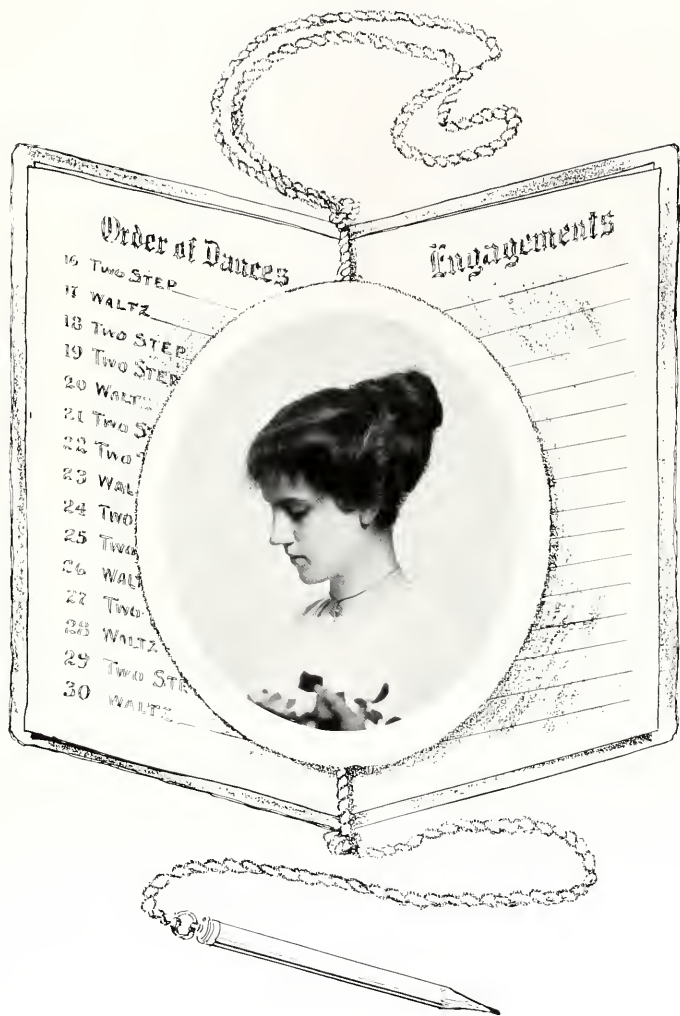 Order of Dances
16 TWO STEP
17 WALTZ
18 TWO STEP
19 TWO STEP
20 WALTZ
21 TWO S
22 TWO
23 WAL
24 TWO
25 TWO
26 WALT
27 TWO
28 WALTZ
29 TWO STE
30 WALTZ
Engagements